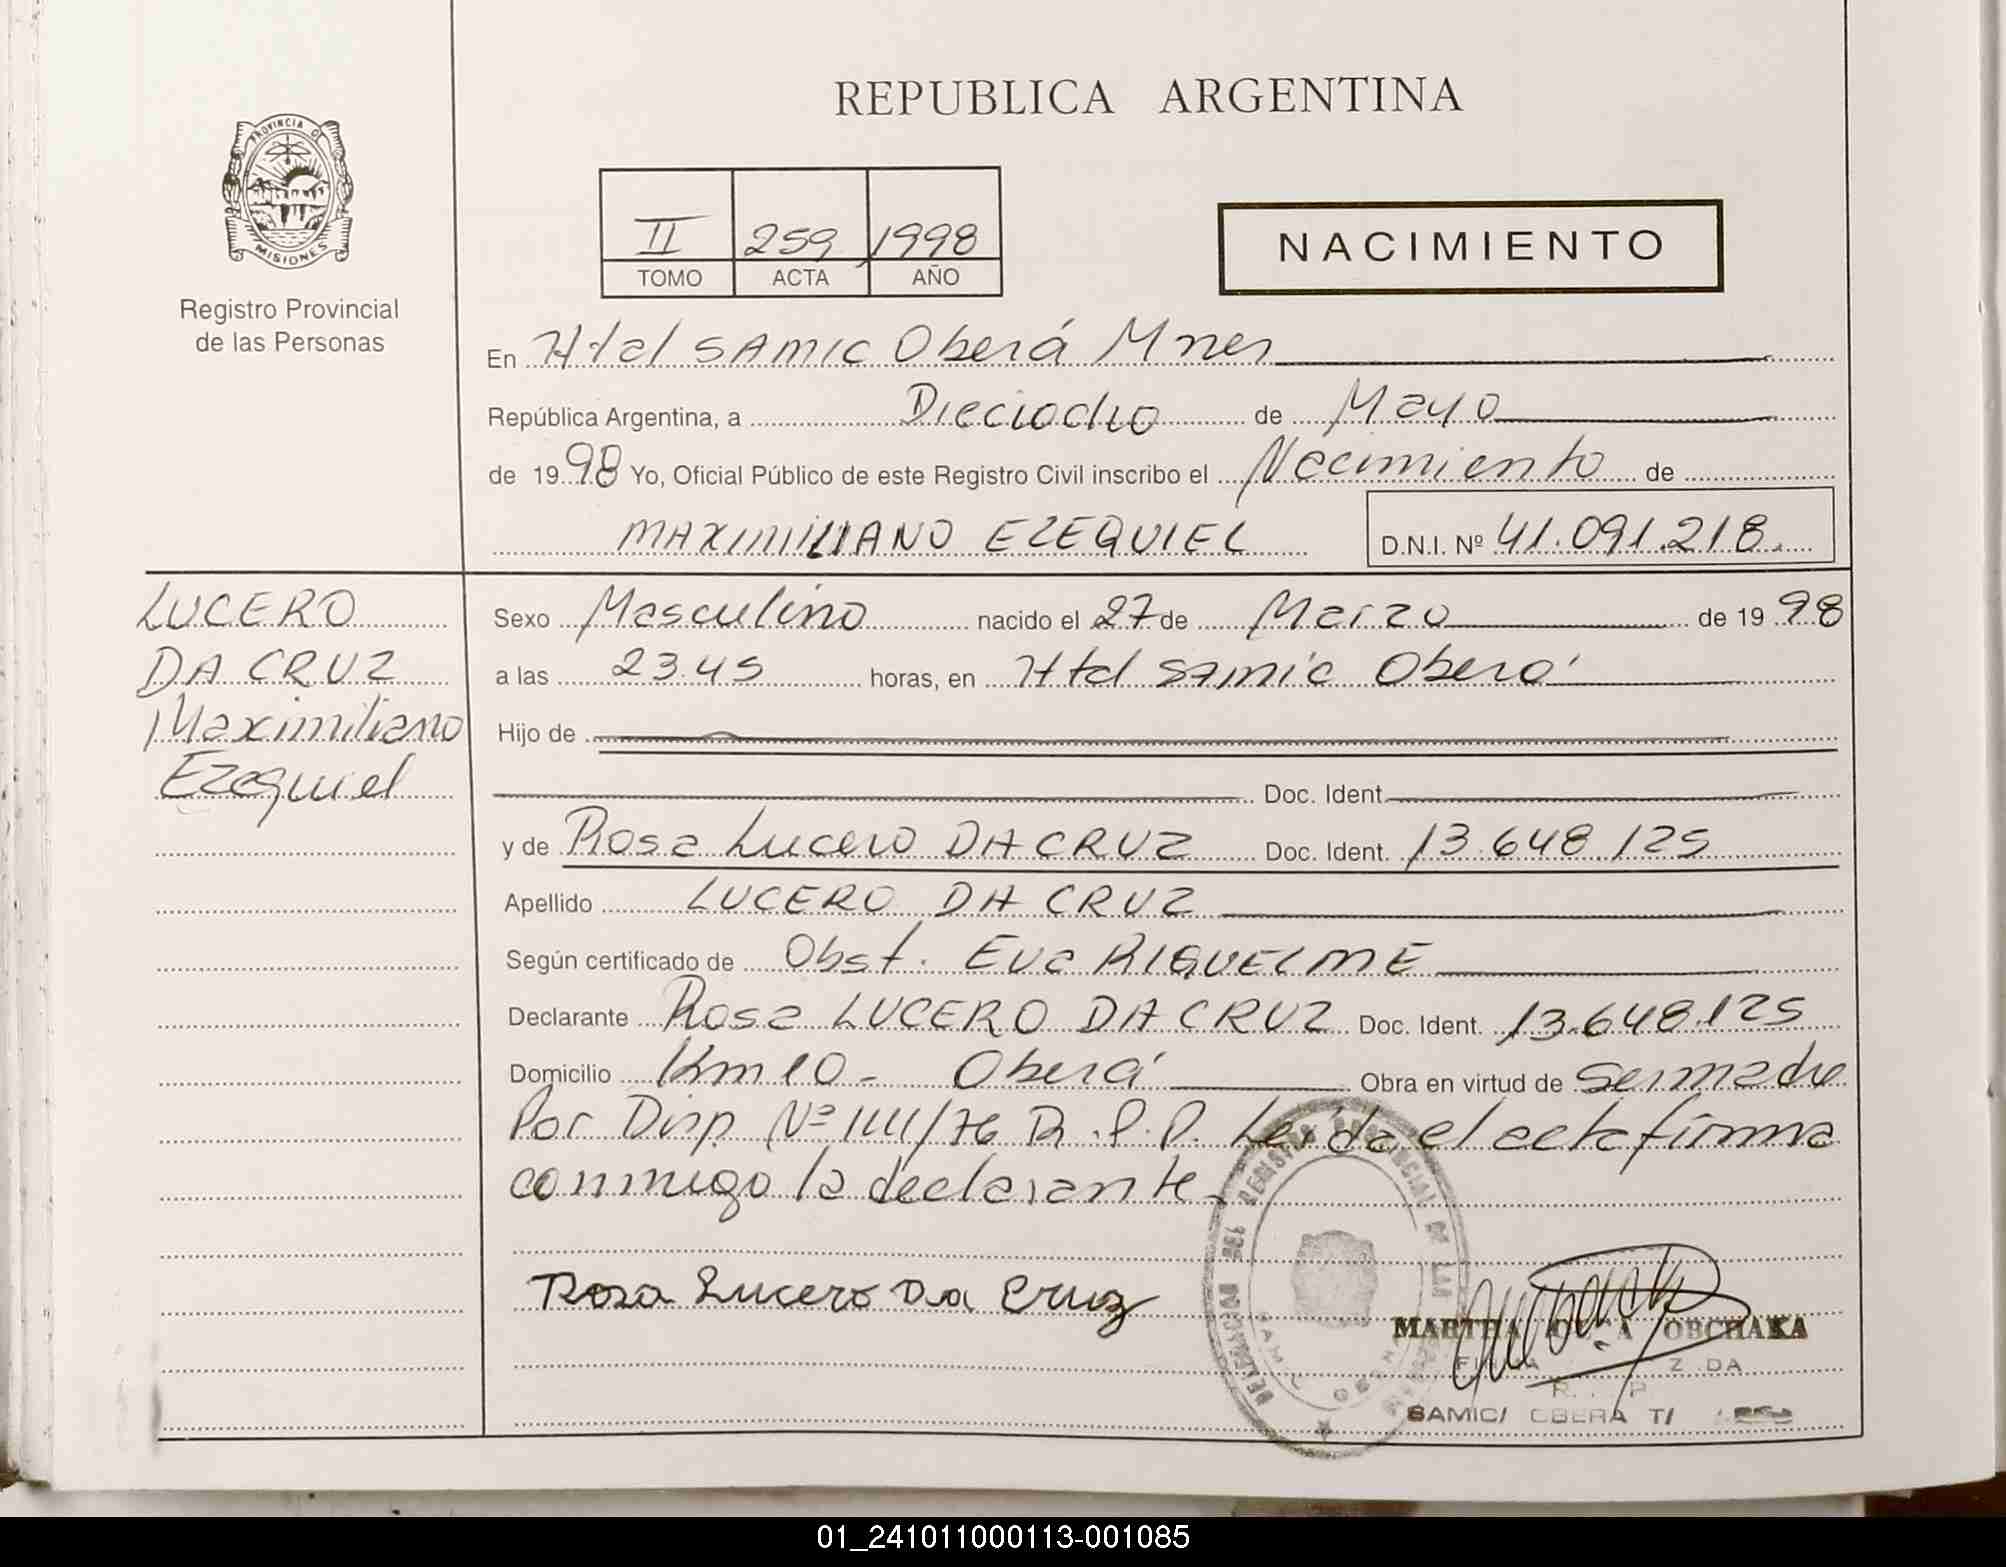 REPUBLICA ARGENTINA
PROVINCIA DE
MISIONES
Registro Provincial
de las Personas
II 259 1998
TOMO ACTA AÑO
NACIMIENTO
En Htal SAMIC Oberá Mnes
República Argentina, a Dieciocho de Mayo
de 1998 Yo, Oficial Público de este Registro Civil inscribo el Nacimiento de
MAXIMILIANO EZEQUIEL D.N.I. Nº 41.091.218.
LUCERO
DA CRUZ
Maximiliano
Ezequiel
Sexo Masculino nacido el 27 de Marzo de 1998
a las 23.45 horas, en Htal SAMIC Oberá
Hijo de
Doc. Ident.
y de Rosa Lucero DA CRUZ Doc. Ident. 13.648.125
Apellido LUCERO DA CRUZ
Según certificado de Obst. Eva RIQUELME
Declarante Rosa LUCERO DA CRUZ Doc. Ident. 13.648.125
Domicilio Km 10 - Oberá Obra en virtud de ser madre
Por Disp. Nº 1111/76 R.P.P. Leída el acta firma
conmigo la declarante.
Rosa Lucero Da Cruz
DELEGACION DEL REGISTRO PROVINCIAL DE LAS
MARTHA OBCHAKA
SAMIC/ OBERA
01_241011000113-001085